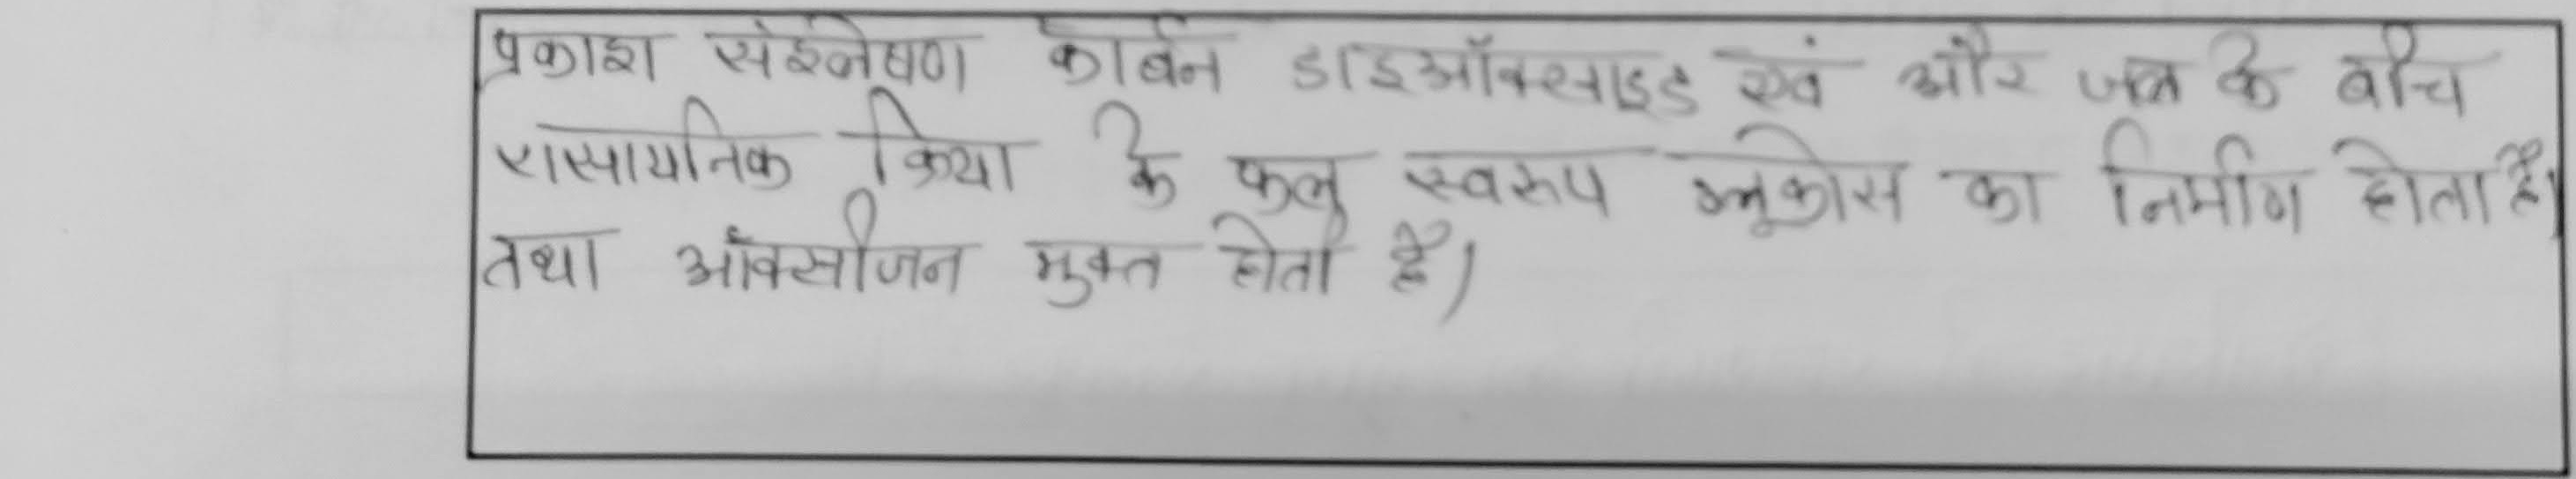 प्रकाश संश्लेषण कार्बन डाइऑक्साइड एवं और जल के बीच
रासायनिक क्रिया के फल स्वरूप ग्लूकोस का निर्माण होता है।
तथा ऑक्सीजन मुक्त होती है।